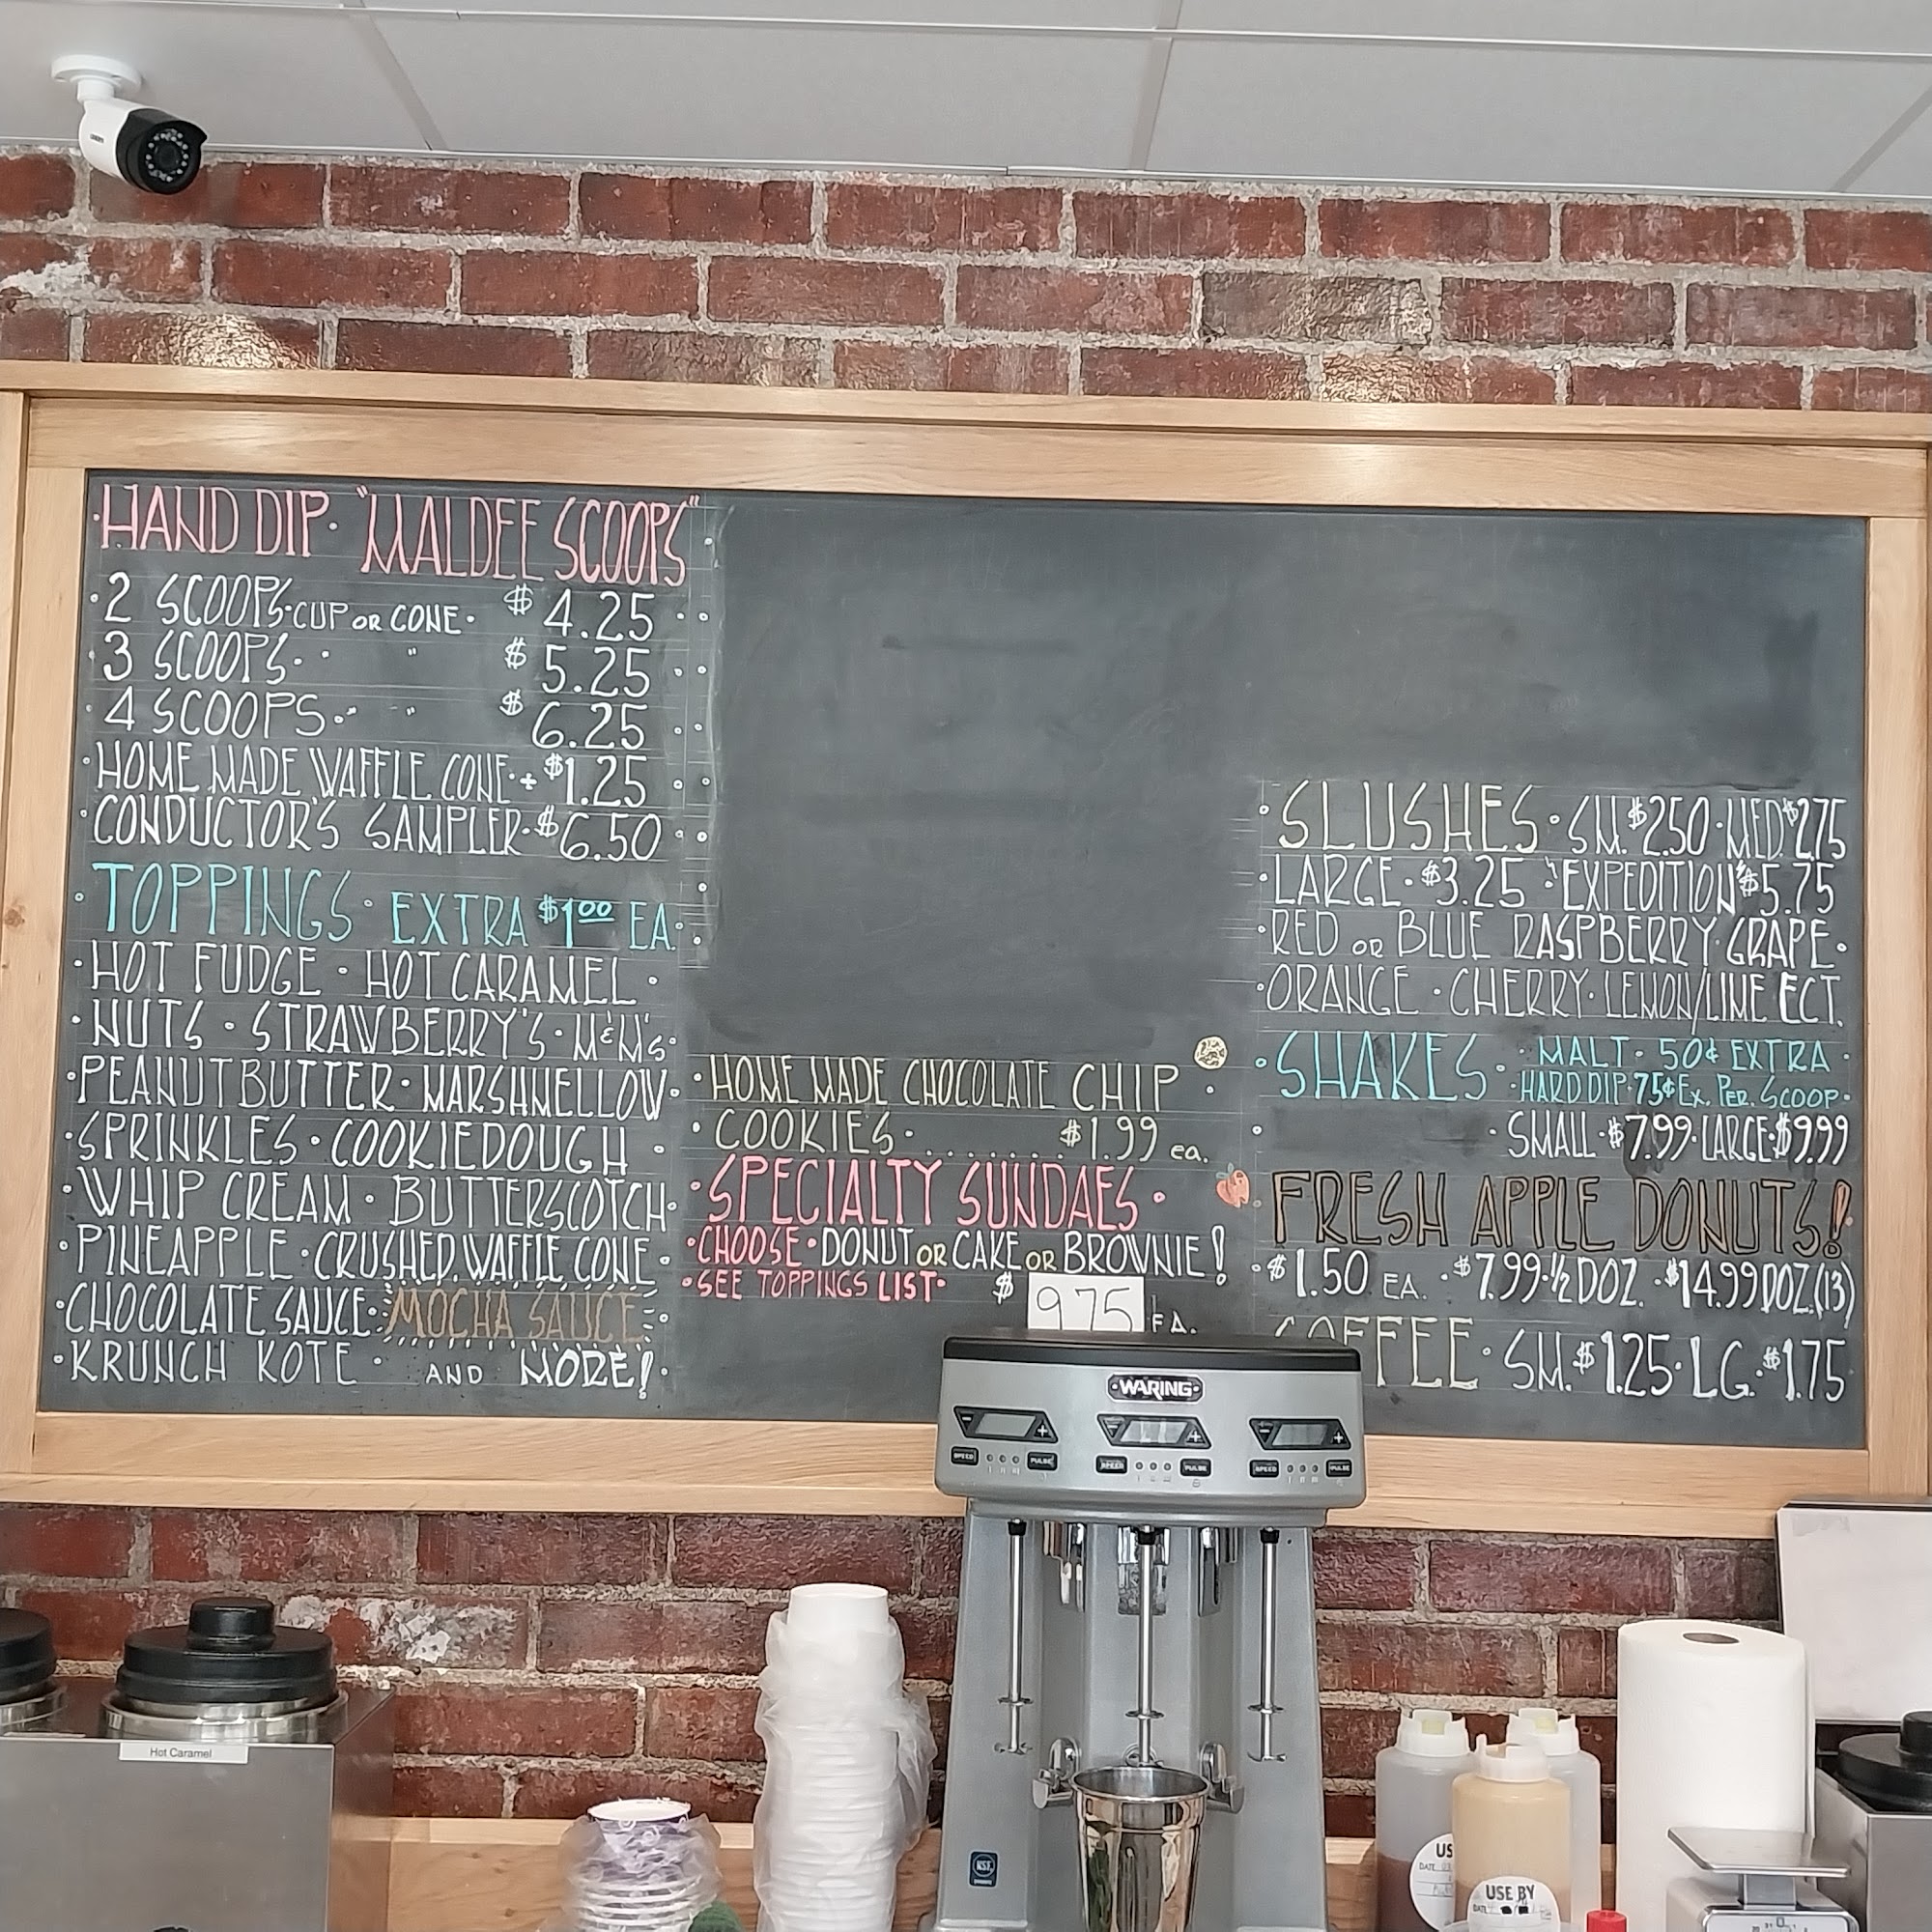 HAND DIP· "MALDEE SCOOPS"
·2 SCOOPS·CUP OR CONE· $4.25
·3 SCOOPS· " " $5.25
·4 SCOOPS· " " $6.25
·HOME MADE WAFFLE CONE·+$1.25
·CONDUCTOR'S SAMPLER·$6.50
·TOPPINGS· EXTRA $1.00 EA.
·HOT FUDGE · HOT CARAMEL·
·NUTS · STRAWBERRY'S · M&M's·
·PEANUTBUTTER· MARSHMELLOW·
·SPRINKLES · COOKIEDOUGH·
·WHIP CREAM · BUTTERSCOTCH·
·PINEAPPLE · CRUSHED WAFFLE CONE·
·CHOCOLATE SAUCE· MOCHA SAUCE
·KRUNCH KOTE · AND MORE!
·HOME MADE CHOCOLATE CHIP
·COOKIES· ....... $1.99 ea.
·SPECIALTY SUNDAES·
·CHOOSE·DONUT OR CAKE OR BROWNIE!
·SEE TOPPINGS LIST· $ 975 EA.
·SLUSHES· SM. $2.50·MED $2.75
·LARGE·$3.25 ·"EXPEDITION" $5.75
·RED OR BLUE RASPBERRY·GRAPE·
·ORANGE ·CHERRY· LEMON/LIME ECT.
·SHAKES· MALT· 50¢ EXTRA·
·HARD DIP·75¢ EX. PER. SCOOP·
·SMALL·$7.99·LARGE·$9.99
FRESH APPLE DONUTS!
·$1.50 EA. ·$7.99·½ DOZ. ·$14.99 DOZ.(13)
COFFEE· SM.$1.25·LG.·$1.75
WARING
SPEED PULSE SPEED PULSE SPEED PULSE
Hot Caramel
NSF
US
DATE
USE BY
DATE